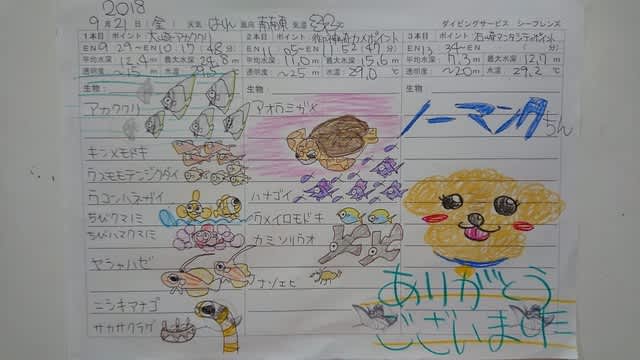 2018
9月21日(金) 天気 はれ 風向 南南東 気温 32℃
ダイビングサービス シーフレンズ
1本目 ポイント 大崎アカククリ
EN 9:29〜EX 10:17(48分)
平均水深 m 最大水深 m
透明度 〜15m 水温 ℃
生物:
アカククリ
キンメモドキ
ウスモモテンジクダイ
ウコンハネガイ
ちびクマノミ
ちびハマクマノミ
ヤシャハゼ
ニシキアナゴ
サカサクラゲ
2本目 ポイント カメポイント
EN 11:05〜EX 11:52(47分)
平均水深 11.0m 最大水深 15.6m
透明度 〜25m 水温 29.0℃
生物:
アオウミガメ
ハナゴイ
ウメイロモドキ
カミソリウオ
ナゾエビ
3本目 ポイント 石崎マンタシティポイント
EN 13:34〜EX (分)
平均水深 7.3m 最大水深 12.7m
透明度 〜20m 水温 29.2℃
生物:
ノーマンタちん
ありがとう
ございました